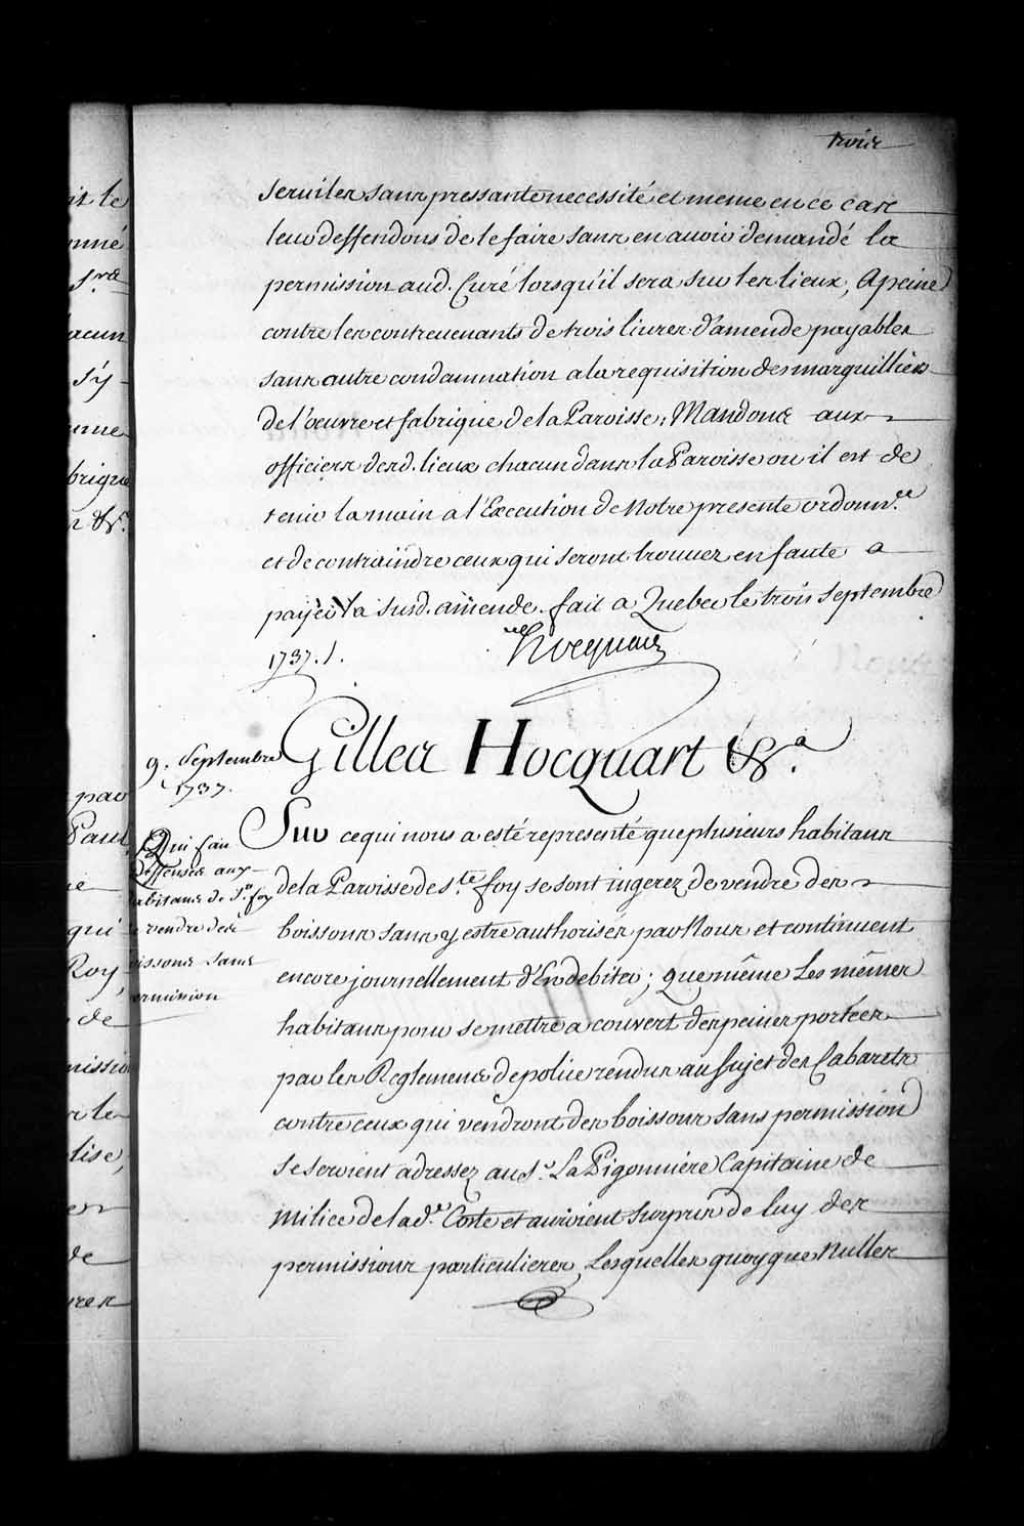 trois
serviles sans pressante necessité et meme en ce cas
leur deffendons de le faire sans en avoir demandé la
permission aud. Curé lorsqu'il sera sur les lieux, A peine
contre les contrevenants de trois livres d'amende payables
sans autre condamnation a la requisition des marguilliers
de l'oeuvre et fabrique de la Paroisse, Mandons aux
officiers desd. lieux chacun dans la Paroisse ou il est de
tenir la main a l'Execution de Notre presente ordonn.ce
et de contraindre ceux qui seront trouvez en faute a
payer la susd. amende. fait a Quebec le trois Septembre
1737. /.
Hocquart
Gilles Hocquart &.a
9. Septembre
1737.
Qui fait
deffenses aux
habitans de S.te foy
de vendre des
boissons sans
permission
Sur ce qui nous a esté representé que plusieurs habitans
de la Paroisse de S.te foy se sont ingerez de vendre des
boissons sans y estre authorisés par Nous et continuent
encore journellement d'En debiter; que même Les mêmes
habitans pour se mettre a couvert des peines portées
par les Reglemens de police rendus au sujet des Cabarets
contre ceux qui vendront des boissons sans permission
se seroient adressez au S.r La Pigonniére Capitaine de
milice de lad.e Coste et auroient surpris de luy des
permissions particulieres, Lesquelles quoyque Nulles
it le
nné
S.rs
acun
s'y
brique
&c.
par
Paul
qui
Roy,
de
mission
le
lise,
de